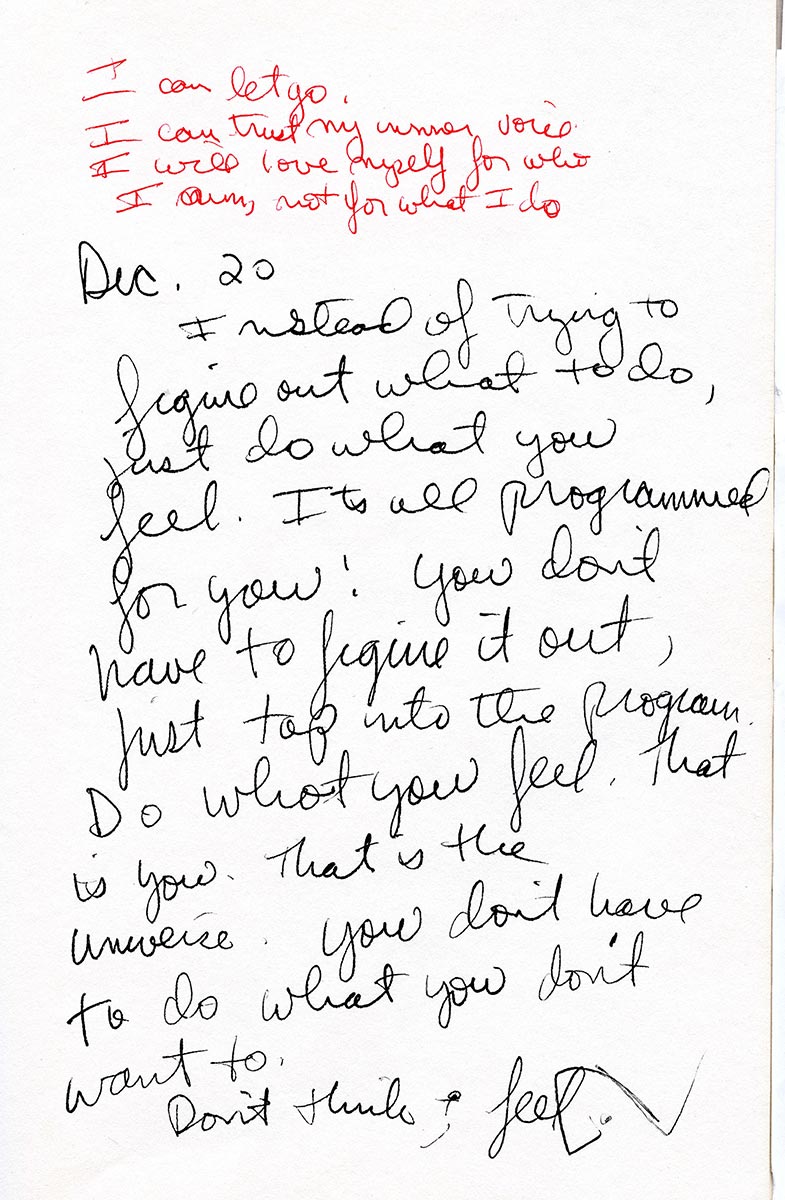 I can let go.
I can trust my inner voice.
I will love myself for who
I am, not for what I do
Dec. 20
Instead of trying to
figure out what to do,
just do what you
feel. Its all programmed
for you! You don't
have to figure it out,
just tap into the program.
Do what you feel. That
is you. That is the
universe. You don't have
to do what you don't
want to.
Don't think; feel.